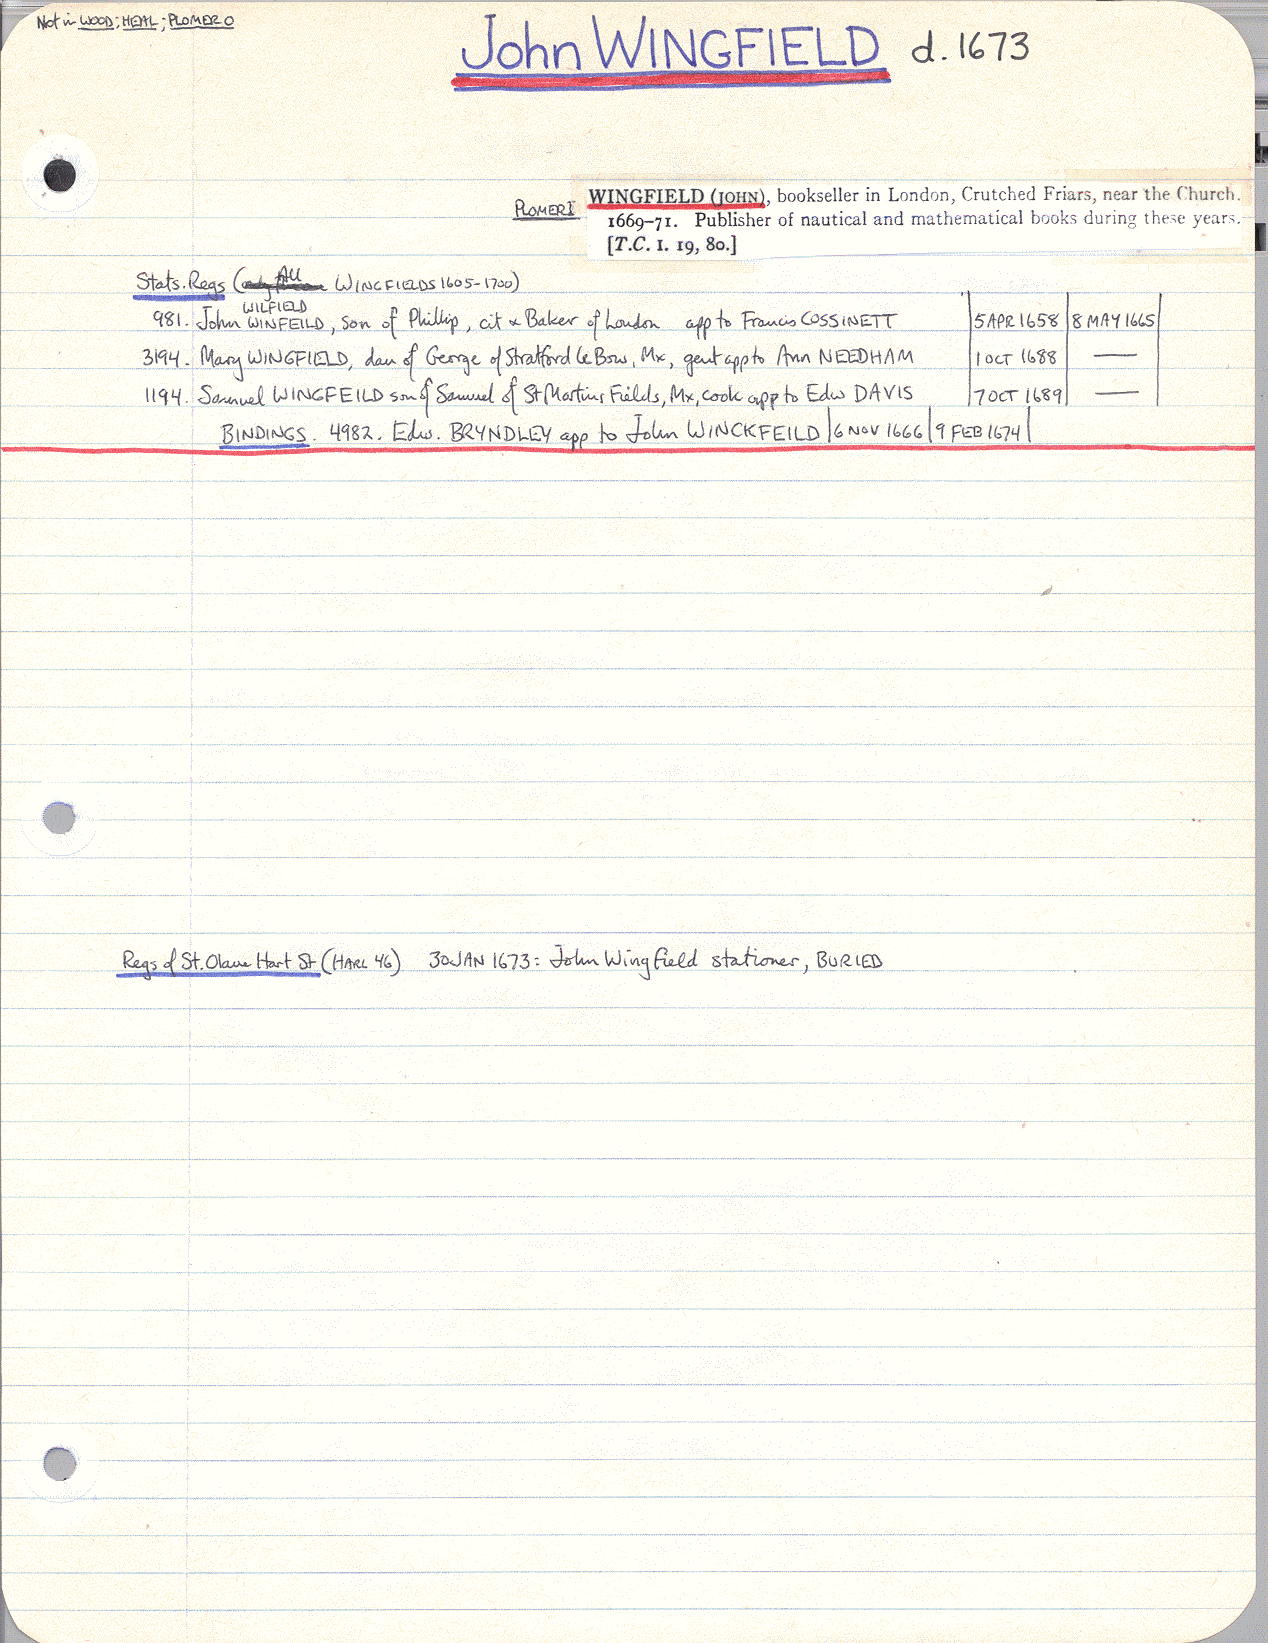 Not in WOOD; HEAL; PLOMER O
John WINGFIELD d. 1673
PLOMER I WINGFIELD (JOHN), bookseller in London, Crutched Friars, near the Church.
1669–71. Publisher of nautical and mathematical books during these years.
[T.C. I. 19, 80.]
Stats. Regs (All WINGFIELDS 1605-1700)
WILFIELD
981. John WINFEILD, son of Phillip, cit & Baker of London app to Francis COSSINETT 5 APR 1658 8 MAY 1665
3194. Mary WINGFIELD, dau of George of Stratford Le Bow, Mx, gent app to Ann NEEDHAM 1 OCT 1688 —
1194. Samuel WINGFEILD son of Samuel of St Martins Fields, Mx, cook app to Edw DAVIS 7 OCT 1689 —
BINDINGS. 4982. Edw. BRYNDLEY app to John WINCKFEILD 6 NOV 1666 9 FEB 1674
Regs of St. Olave Hart St (HARL 46) 30 JAN 1673: John Wingfield stationer, BURIED